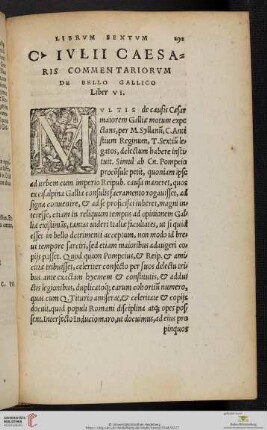 LIBRVM SEXTVM 292
C. IVLII CAESA-
RIS COMMENTARIORVM
DE BELLO GALLICO
Liber VI.
MVLTIS de causis Cæsar
maiorem Galliæ motum expe
ctans, per M. Syllanũ, C. Anti
stium Reginum, T. Sextiũ le
gatos, delectum habere insti
tuit. Simul ab Cn. Pompeio
procõsule petit, quoniam ipse
ad urbem cum imperio Reipub. causa maneret, quos
ex cisalpina Gallia consulis sacramento rogauisset, ad
signa conuenire, & ad se proficisci iuberet, magni in-
teresse, etiam in reliquum tempus ad opinionem Gal-
liæ existimãs, tantas uideri Italiæ facultates, ut si quid
esset in bello detrimenti acceptum, non modo id breui
tempore sarciri, sed etiam maioribus adaugeri co-
pijs posset. Quod quum Pompeius, & Reip. & ami-
citiæ tribuisset, celeriter confecto per suos delectu tri-
bus ante exactam hyemem & constitutis, & addu-
ctis legionibus, duplicatoq; earum cohortiũ numero,
quas cum Q. Titurio amiserat, & celeritate & copijs
docuit, quid populi Romani disciplina atq; opes pos-
sent. Interfecto Induciomaro, ut docuimus, ad eius pro
pinquos